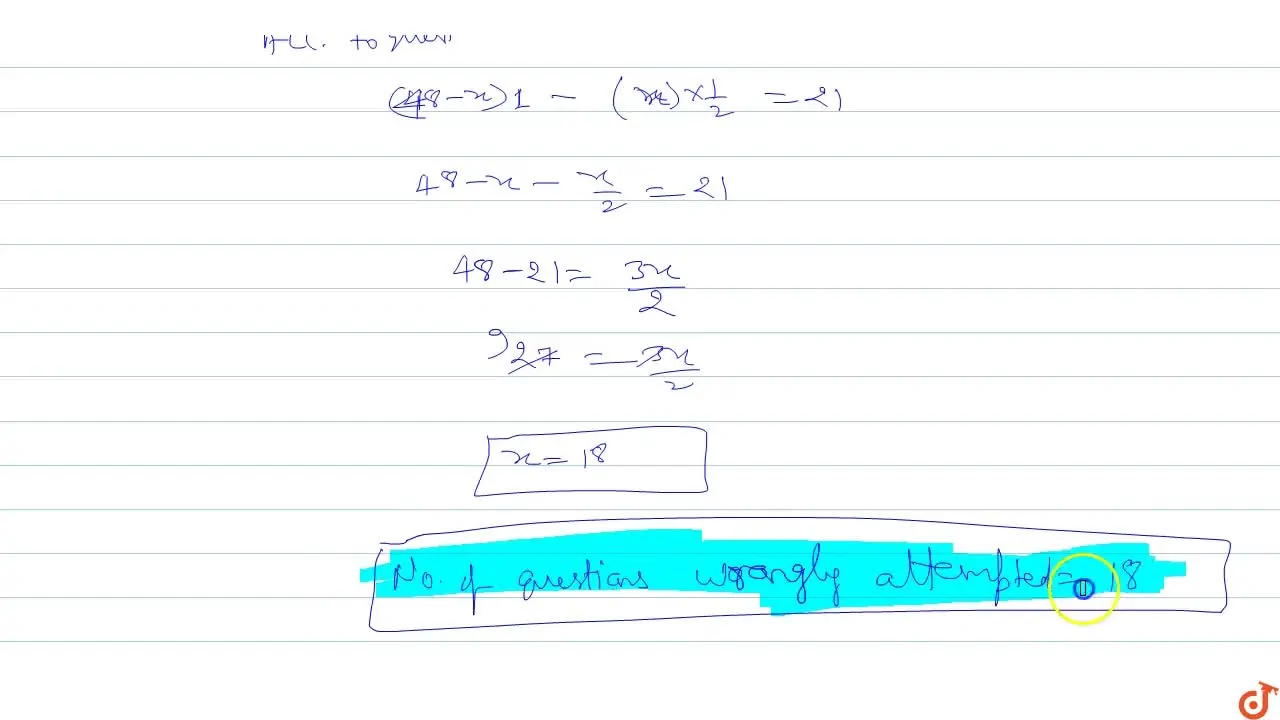 to
(48-x)1 - (x)×1/2 = 21
48-x - x/2 = 21
48-21 = 3x/2
9 27 = 3x/2
x = 18
No. of questions wrongly attempted = 18